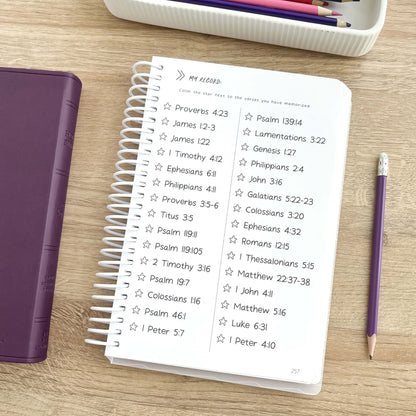 MY RECORD:
Color the star next to the verses you have memorized
Proverbs 4:23
James 1:2-3
James 1:22
1 Timothy 4:12
Ephesians 6:11
Philippians 4:11
Proverbs 3:5-6
Titus 3:5
Psalm 119:11
Psalm 119:105
2 Timothy 3:16
Psalm 19:7
Colossians 1:16
Psalm 46:1
1 Peter 5:7
Psalm 139:14
Lamentations 3:22
Genesis 1:27
Philippians 2:4
John 3:16
Galatians 5:22-23
Colossians 3:20
Ephesians 4:32
Romans 12:15
1 Thessalonians 5:15
Matthew 22:37-38
1 John 4:11
Matthew 5:16
Luke 6:31
1 Peter 4:10
257